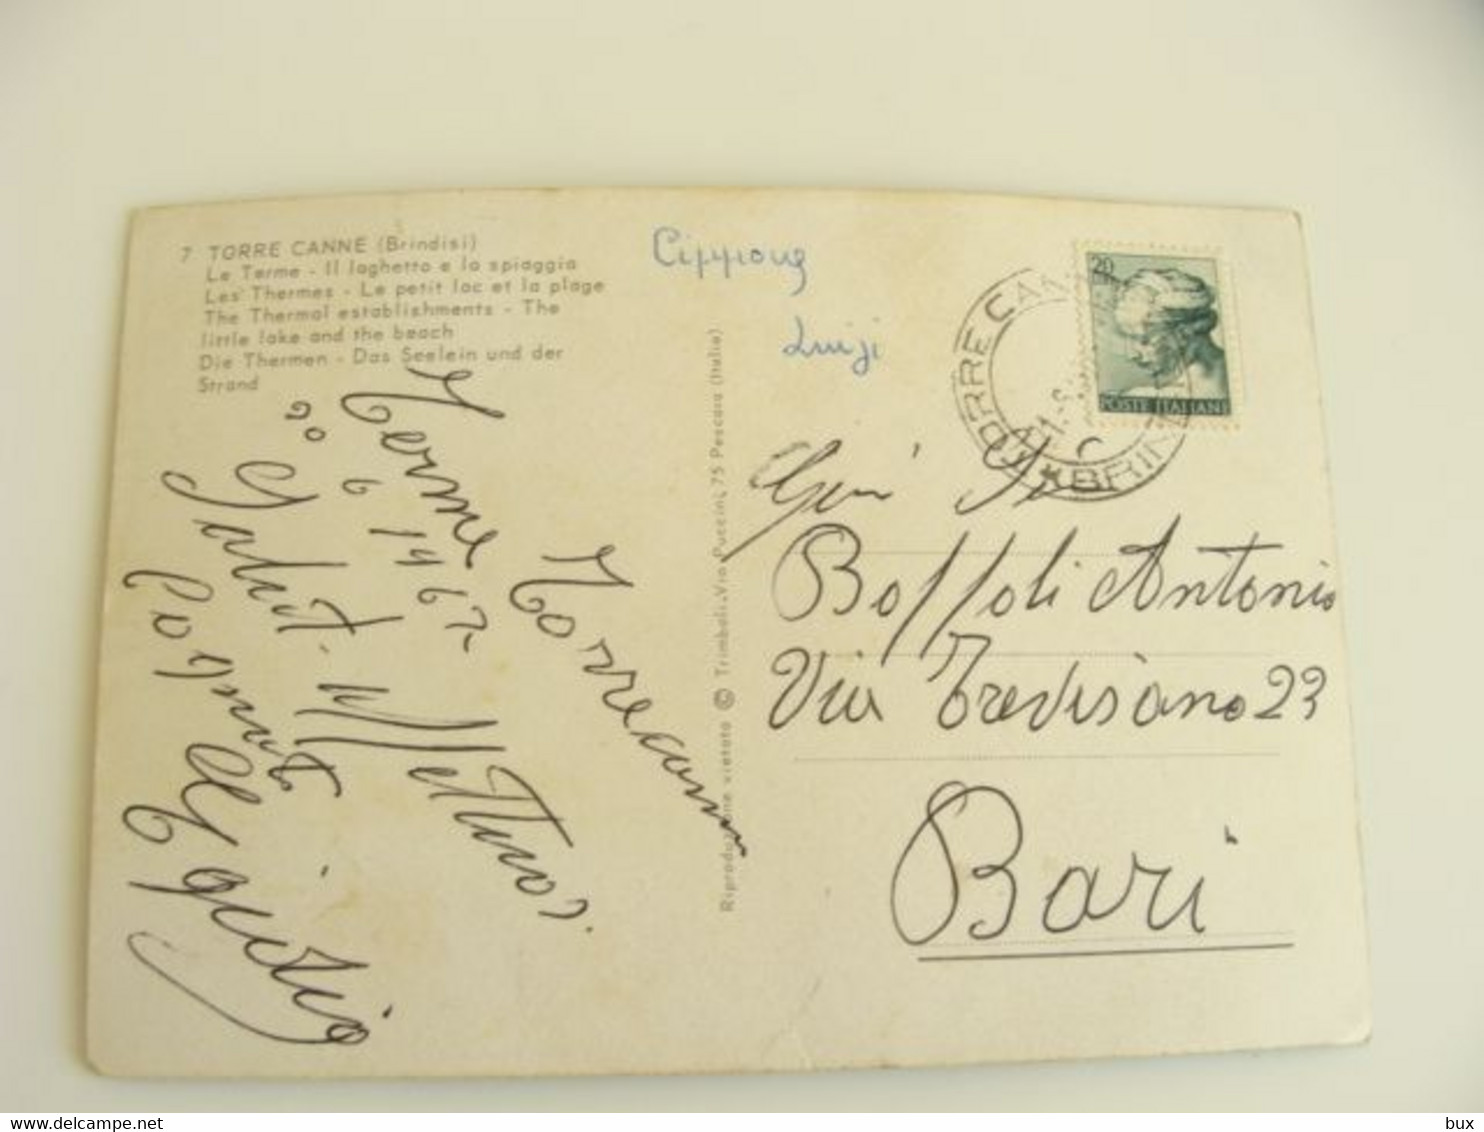 7 TORRE CANNE (Brindisi)
Le Terme - Il laghetto e la spiaggia
Les Thermes - Le petit lac et la plage
The Thermal establishments - The
little lake and the beach
Die Thermen - Das Seelein und der
Strand
Luigi
20
POSTE ITALIANE
TORRE CAN
BRIN
Riproduzione vietata © Trimboli, Via Puccini, 75 Pescara (Italia)
Terme Torrecanne
20 6 1967
Salut. affettuosi
Egidio
Boffoli Antonio
Via Trevisano 23
Bari
www.delcampe.net
bux